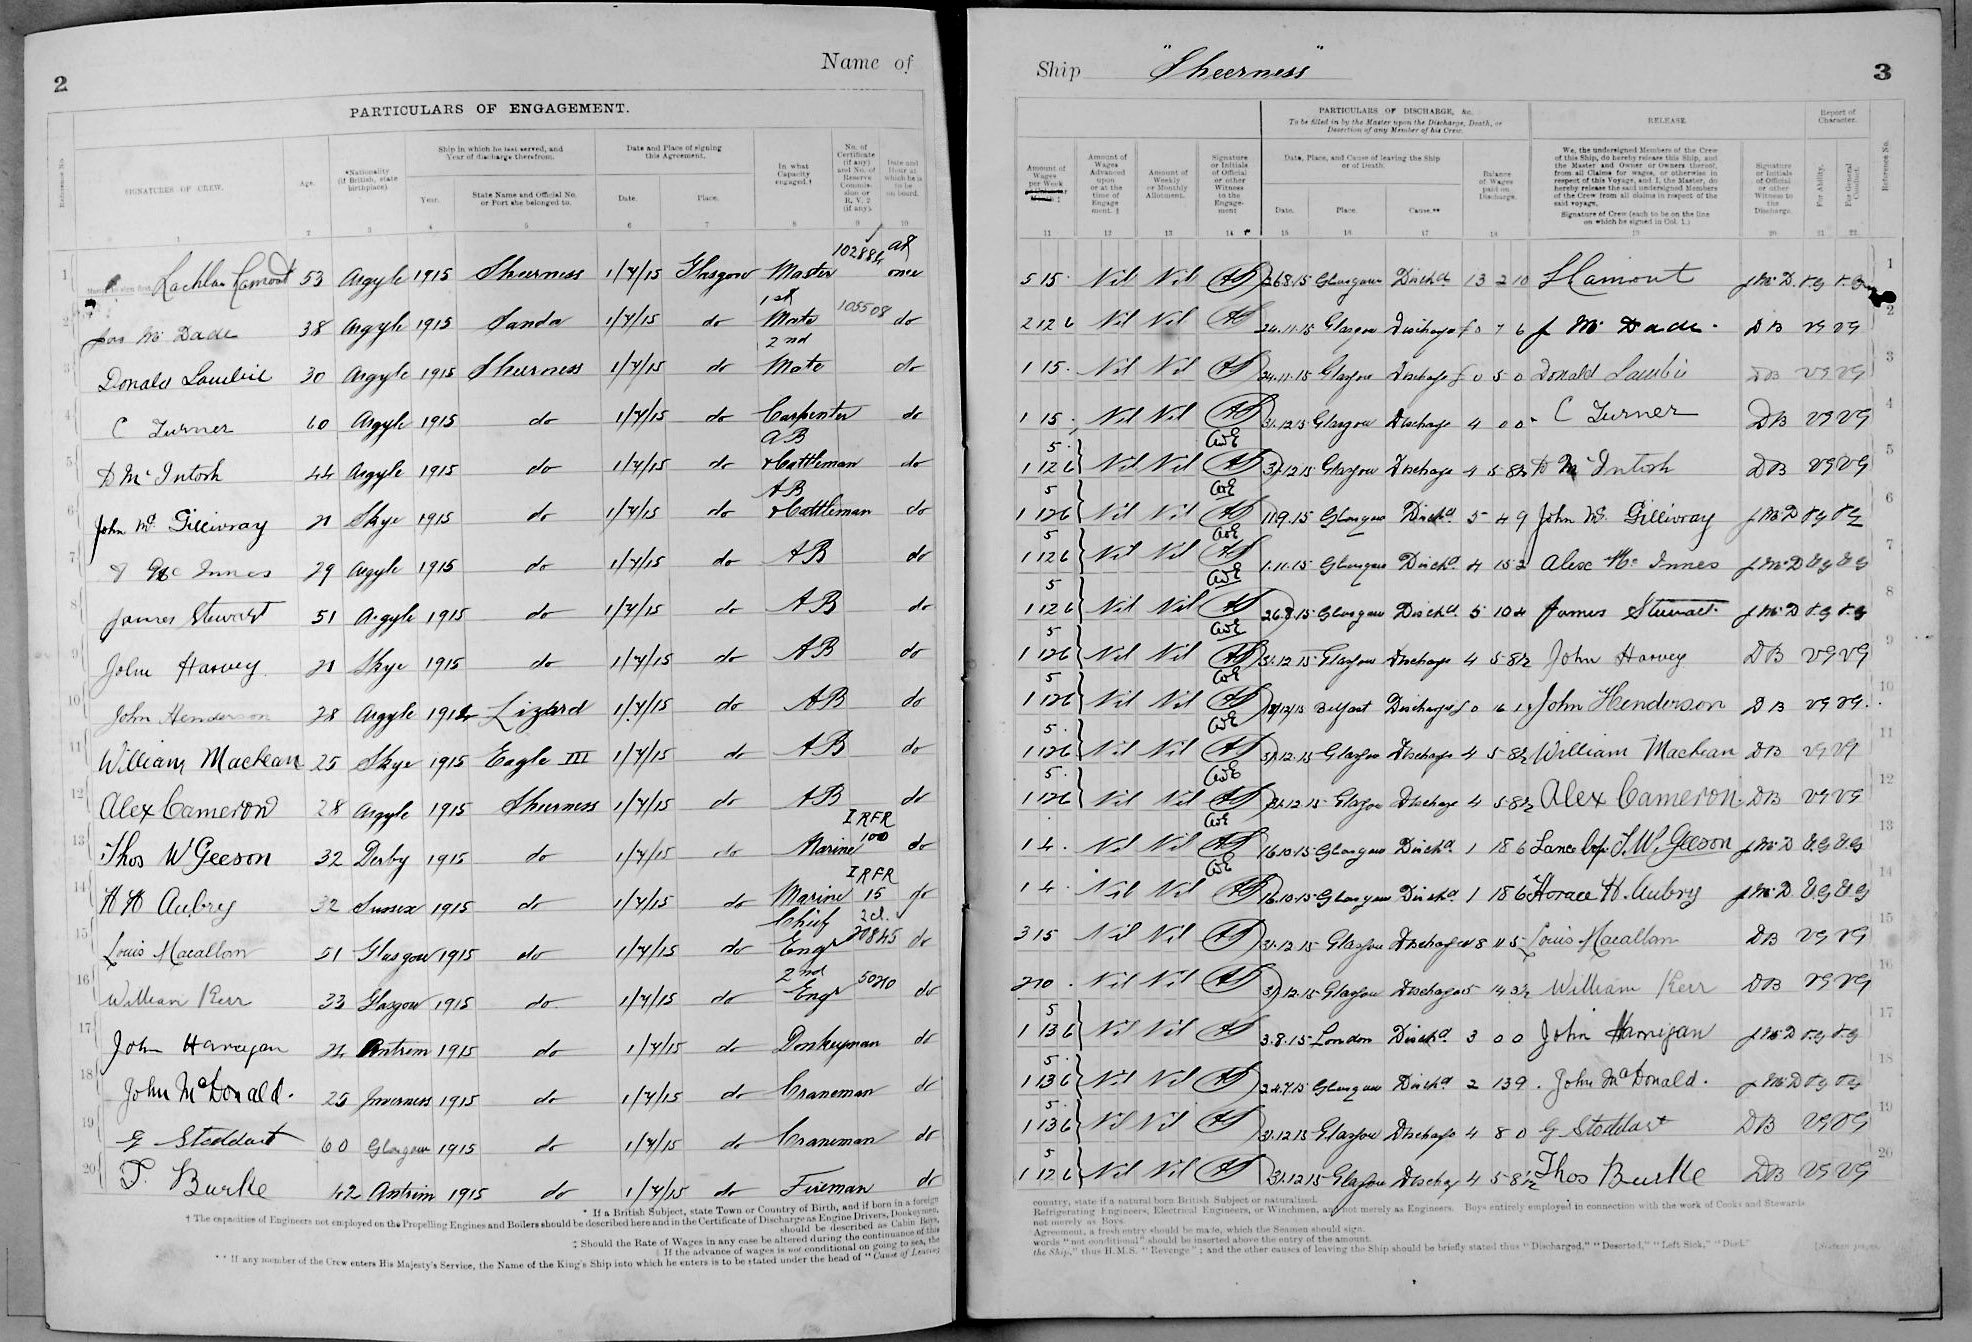 2
Name of
PARTICULARS OF ENGAGEMENT.
Reference No.
SIGNATURES OF CREW.
Age.
*Nationality (if British, state birthplace).
Ship in which he last served, and Year of discharge therefrom.
Year.
State Name and Official No. or Port she belonged to.
Date and Place of signing this Agreement.
Date.
Place.
In what Capacity engaged.†
No. of Certificate (if any) and No. of Reserve Commission or R.V.2 (if any).
Date and Hour at which he is to be on board.
1 2 3 4 5 6 7 8 9 10
1 Lachlan Lamont 53 Argyle 1915 Sheerness 1/7/15 Glasgow Master 102884 at once
2 Jas Mc Dade 38 Argyle 1915 Sanda 1/7/15 do 1st Mate 105508 do
3 Donald 30 Argyle 1915 Sheerness 1/7/15 do 2nd Mate do
4 C Turner 60 Argyle 1915 do 1/7/15 do Carpenter do
5 D McIntosh 44 Argyle 1915 do 1/7/15 do AB & Cattleman do
6 John Mc Gillivray 21 Skye 1915 do 1/7/15 do AB & Cattleman do
7 Mc Innes 29 Argyle 1915 do 1/7/15 do AB do
8 James Stewart 51 Argyle 1915 do 1/7/15 do AB do
9 John Harvey 21 Skye 1915 do 1/7/15 do AB do
10 John Henderson 28 Argyle Lizard 1/7/15 do AB do
11 William Maclean 25 Skye 1915 Eagle III 1/7/15 do AB do
12 Alex Cameron 28 Argyle 1915 Sheerness 1/7/15 do AB do
13 Thos W Geeson 32 Derby 1915 do 1/7/15 do Marine I RFR 100 do
14 H H Aubrey 32 Sussex 1915 do 1/7/15 do Marine I RFR 15 do
15 Louis Macallum 51 Glasgow 1915 do 1/7/15 do Chief Engr 2 cl. do
16 William Kerr 33 Glasgow 1915 do 1/7/15 do 2nd Engr do
17 John Hannigan Antrim 1915 do 1/7/15 do Donkeyman do
18 John McDonald. 25 Inverness 1915 do 1/7/15 do Craneman do
19 G Stoddart 60 Glasgow 1915 do 1/7/15 do Craneman do
20 T. Burke 42 Antrim 1915 do 1/7/15 do Fireman do
* If a British Subject, state Town or Country of Birth, and if born in a foreign
† The capacities of Engineers not employed on the Propelling Engines and Boilers should be described here and in the Certificate of Discharge as Engine Drivers, Donkeymen,
should be described as Cabin Boys,
‡ Should the Rate of Wages in any case be altered during the continuance of this
If the advance of wages is not conditional on going to sea, the
** If any member of the Crew enters His Majesty's Service, the Name of the King's Ship into which he enters is to be stated under the head of "Cause of Leaving
Ship "Sheerness"
3
Amount of Wages per Week
Amount of Wages Advanced upon or at the time of Engagement. ‡
Amount of Weekly or Monthly Allotment.
Signature or Initials of Official or other Witness to the Engagement
PARTICULARS OF DISCHARGE, &c.
To be filled in by the Master upon the Discharge, Death, or Desertion of any Member of his Crew.
Date, Place, and Cause of leaving the Ship or of Death.
Date.
Place.
Cause.**
Balance of Wages paid on Discharge.
RELEASE.
We, the undersigned Members of the Crew of this Ship, do hereby release this Ship, and the Master and Owner or Owners thereof, from all Claims for wages, or otherwise in respect of this Voyage, and I, the Master, do hereby release the said undersigned Members of the Crew from all claims in respect of the said voyage.
Signature of Crew (each to be on the line on which he signed in Col. 1.)
Signature or Initials of Official or other Witness to the Discharge.
Report of Character.
For Ability.
For General Conduct.
Reference No.
11 12 13 14 15 16 17 18 19 20 21 22
5 15 Nil Nil 26.8.15 Glasgow Dischd 13 2 10 L Lamont J McD. V.G V.G 1
2 12 6 Nil Nil 24.11.15 Glasgow Discharge £0 7 6 J Mc Dade. DB VG VG 2
1 15 Nil Nil 24.11.15 Glasgow Discharge £0 5 0 Donald DB VG VG 3
1 15 Nil Nil 31.12.15 Glasgow Discharge 4 0 0 C Turner DB VG VG 4
5 1 12 6 Nil Nil 31.12.15 Glasgow Discharge 4 5 8½ D McIntosh DB VG VG 5
5 1 12 6 Nil Nil Glasgow Dischd 5 4 9 John Mc Gillivray J McD V.G V.G 6
5 1 12 6 Nil Nil 1.11.15 Glasgow Dischd 4 15 2 Alex Mc Innes J McD V.G V.G 7
5 1 12 6 Nil Nil 26.8.15 Glasgow Dischd 5 10 4 James Stewart J McD V.G V.G 8
5 1 12 6 Nil Nil 31.12.15 Glasgow Discharge 4 5 8½ John Harvey DB VG VG 9
5 1 12 6 Nil Nil Belfast Discharge £0 John Henderson DB VG VG. 10
5 1 12 6 Nil Nil 31.12.15 Glasgow Discharge 4 5 8½ William Maclean DB VG VG 11
5 1 12 6 Nil Nil 31.12.15 Glasgow Discharge 4 5 8½ Alex Cameron DB VG VG 12
1 4 Nil Nil 16.10.15 Glasgow Dischd 1 18 6 Lance Cpl T.W. Geeson J McD V.G V.G 13
1 4 Nil Nil 16.10.15 Glasgow Dischd 1 18 6 Horace H. Aubrey J McD V.G V.G 14
3 15 Nil Nil 31.12.15 Glasgow Discharge Louis Macallum DB VG VG 15
2 10 Nil Nil 31.12.15 Glasgow Discharge 5 14 3½ William Kerr DB VG VG 16
5 1 13 6 Nil Nil 3.8.15 London Dischd 3 0 0 John Hannigan J McD V.G V.G 17
5 1 13 6 Nil Nil 24.7.15 Glasgow Dischd 2 13 9 John McDonald. J McD V.G V.G 18
5 1 13 6 Nil Nil 31.12.15 Glasgow Discharge 4 8 0 G Stoddart DB VG VG 19
5 1 12 6 Nil Nil 31.12.15 Glasgow Discharge 4 5 8½ Thos Burke DB VG VG 20
country, state if a natural born British Subject or naturalized.
Refrigerating Engineers, Electrical Engineers, or Winchmen, and not merely as Engineers. Boys entirely employed in connection with the work of Cooks and Stewards
not merely as Boys.
Agreement, a fresh entry should be made, which the Seamen should sign.
words "not conditional" should be inserted above the entry of the amount.
the Ship," thus H.M.S. "Revenge"; and the other causes of leaving the Ship should be briefly stated thus "Discharged," "Deserted," "Left Sick," "Died."